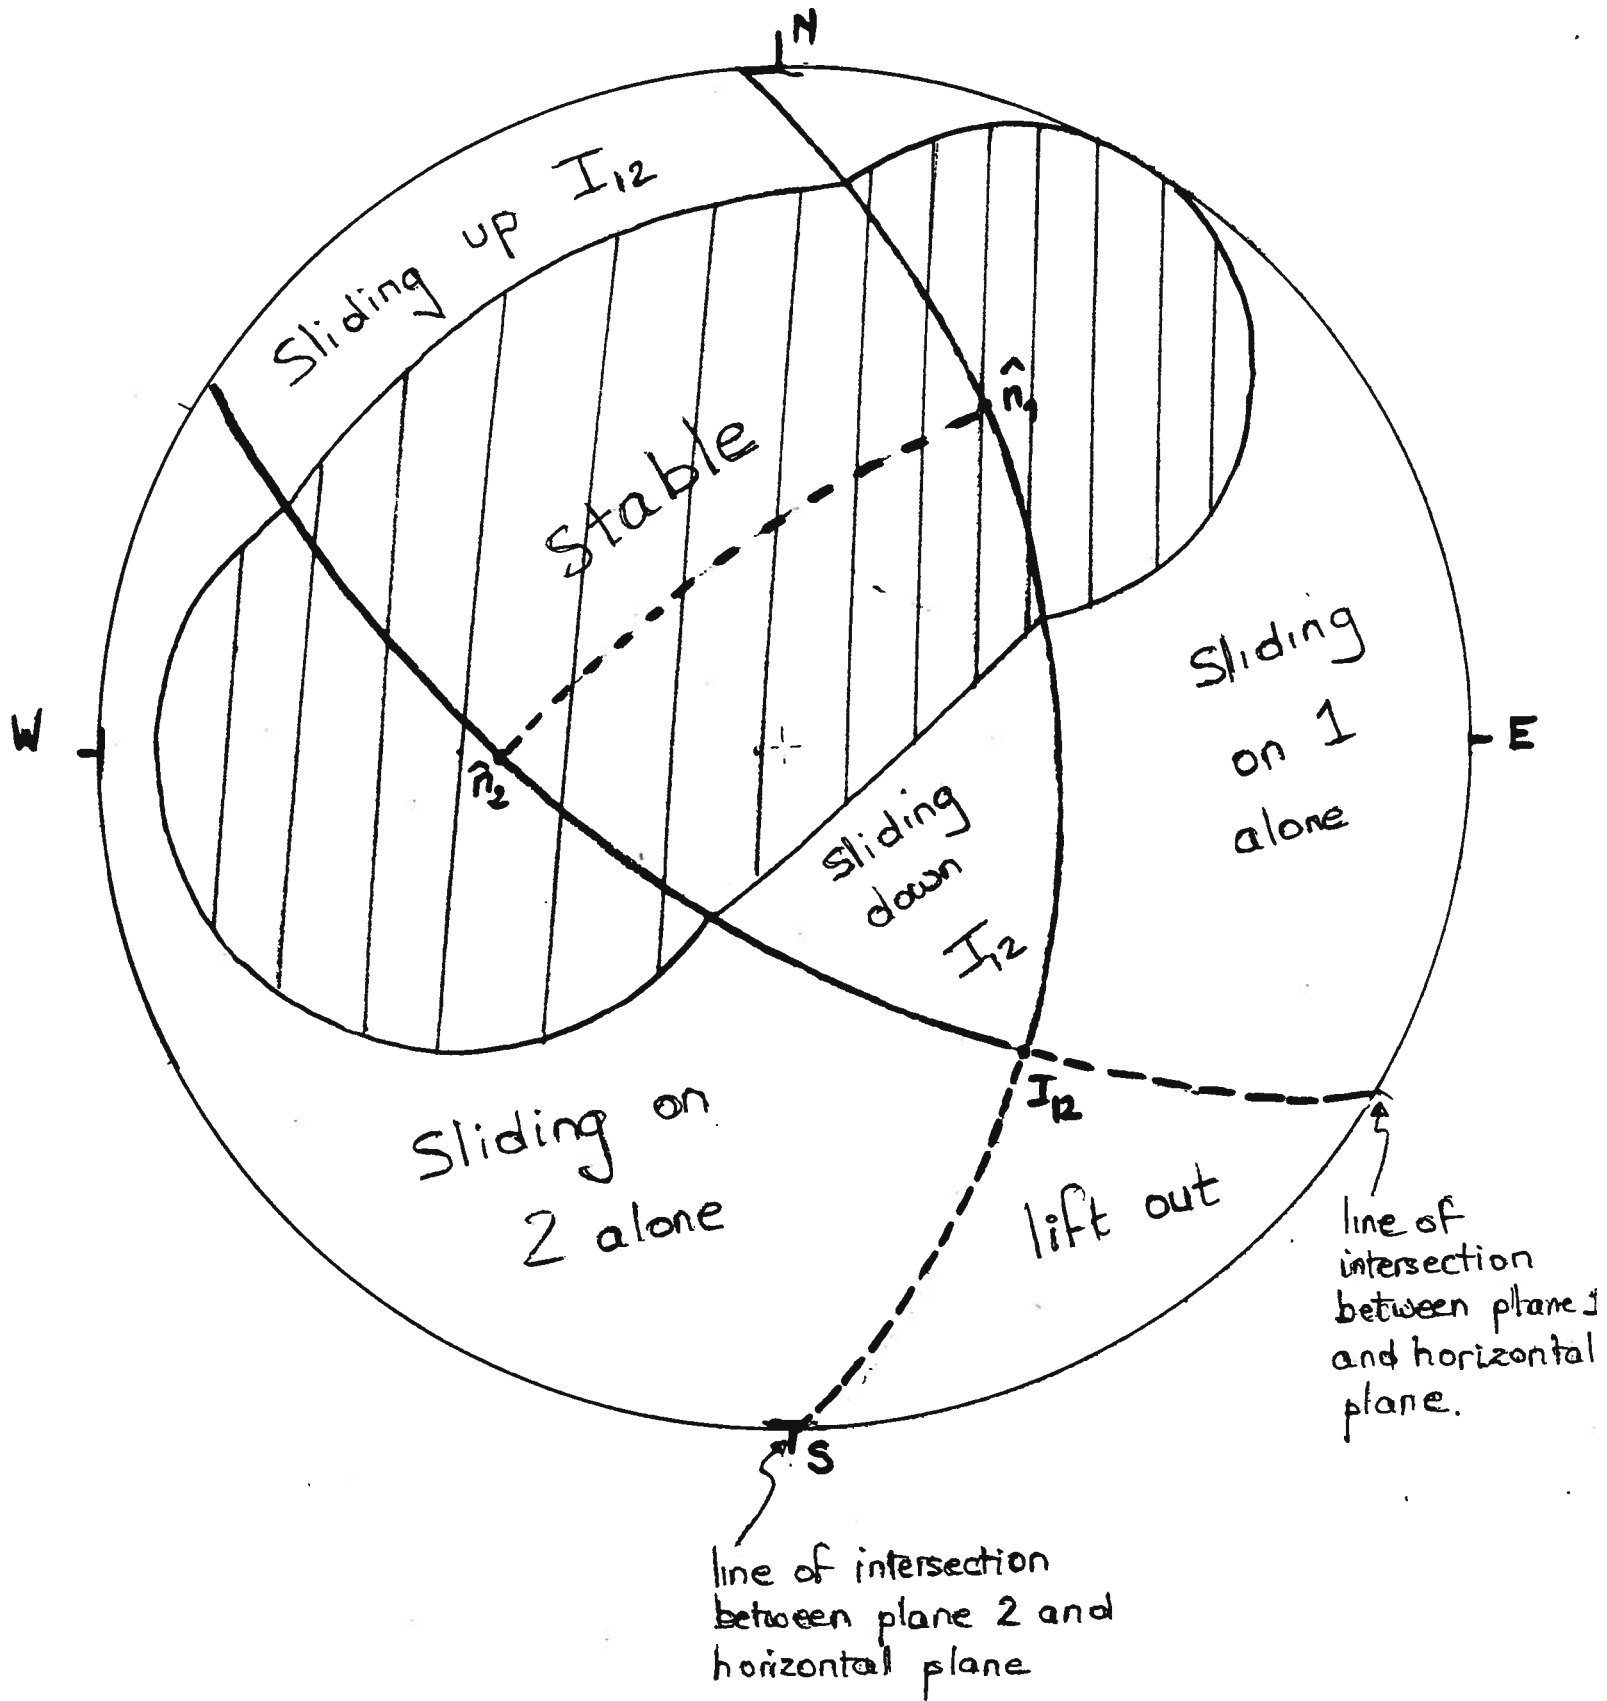 N
Sliding up I12
Stable
n̂1
n̂2
W
E
Sliding
on 1
alone
Sliding
down
I12
I12
Sliding on
2 alone
lift out
S
line of
intersection
between plane 1
and horizontal
plane.
line of intersection
between plane 2 and
horizontal plane